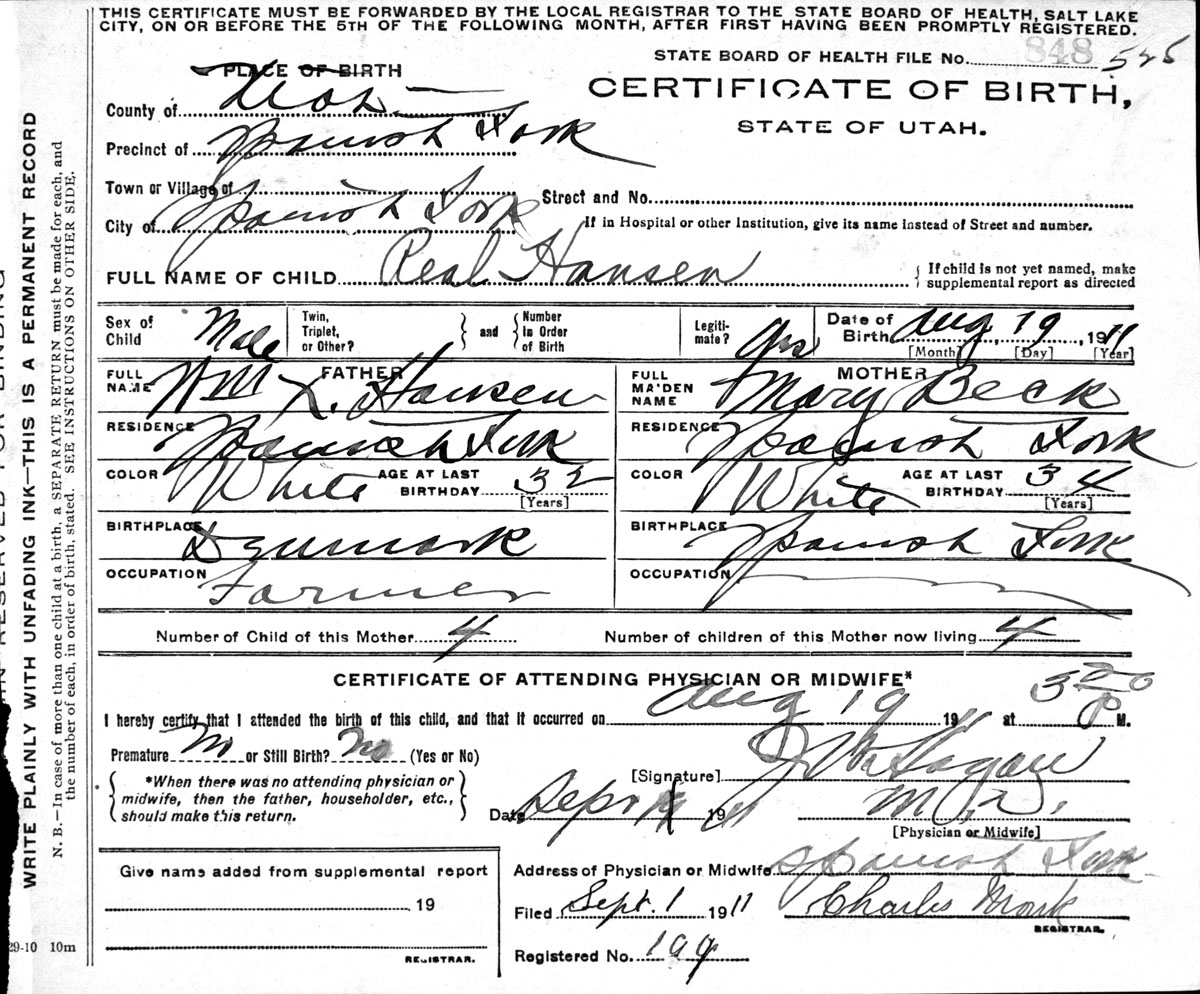 THIS CERTIFICATE MUST BE FORWARDED BY THE LOCAL REGISTRAR TO THE STATE BOARD OF HEALTH, SALT LAKE
CITY, ON OR BEFORE THE 5TH OF THE FOLLOWING MONTH, AFTER FIRST HAVING BEEN PROMPTLY REGISTERED.
STATE BOARD OF HEALTH FILE No. 848 525
PLACE OF BIRTH
CERTIFICATE OF BIRTH,
STATE OF UTAH.
County of Utah
Precinct of Spanish Fork
Town or Village of
Street and No.
City of Spanish Fork
If in Hospital or other Institution, give its name instead of Street and number.
FULL NAME OF CHILD Real Hansen
{ If child is not yet named, make supplemental report as directed
Sex of Child Male
Twin, Triplet, or Other? } and { Number in Order of Birth
Legitimate? yes
Date of Birth Aug 19, 1911
[Month] [Day] [Year]
FATHER
FULL NAME Wm L. Hansen
RESIDENCE Spanish Fork
COLOR White AGE AT LAST BIRTHDAY 32
[Years]
BIRTHPLACE Denmark
OCCUPATION Farmer
MOTHER
FULL MAIDEN NAME Mary Beck
RESIDENCE Spanish Fork
COLOR White AGE AT LAST BIRTHDAY 34
[Years]
BIRTHPLACE Spanish Fork
OCCUPATION
Number of Child of this Mother 4 Number of children of this Mother now living 4
CERTIFICATE OF ATTENDING PHYSICIAN OR MIDWIFE*
I hereby certify that I attended the birth of this child, and that it occurred on Aug 19 1911 at 3 20 P M.
Premature No or Still Birth? No (Yes or No)
{ *When there was no attending physician or midwife, then the father, householder, etc., should make this return. }
[Signature] Hagan
Date Sept 1911 M.D.
[Physician or Midwife]
Give name added from supplemental report
19
REGISTRAR.
Address of Physician or Midwife Spanish Fork
Filed Sept. 1 1911 Charles Monk
REGISTRAR.
Registered No. 199
29-10 10m
WRITE PLAINLY WITH UNFADING INK—THIS IS A PERMANENT RECORD
N. B.—In case of more than one child at a birth, a SEPARATE RETURN must be made for each, and
the number of each, in order of birth, stated. SEE INSTRUCTIONS ON OTHER SIDE.